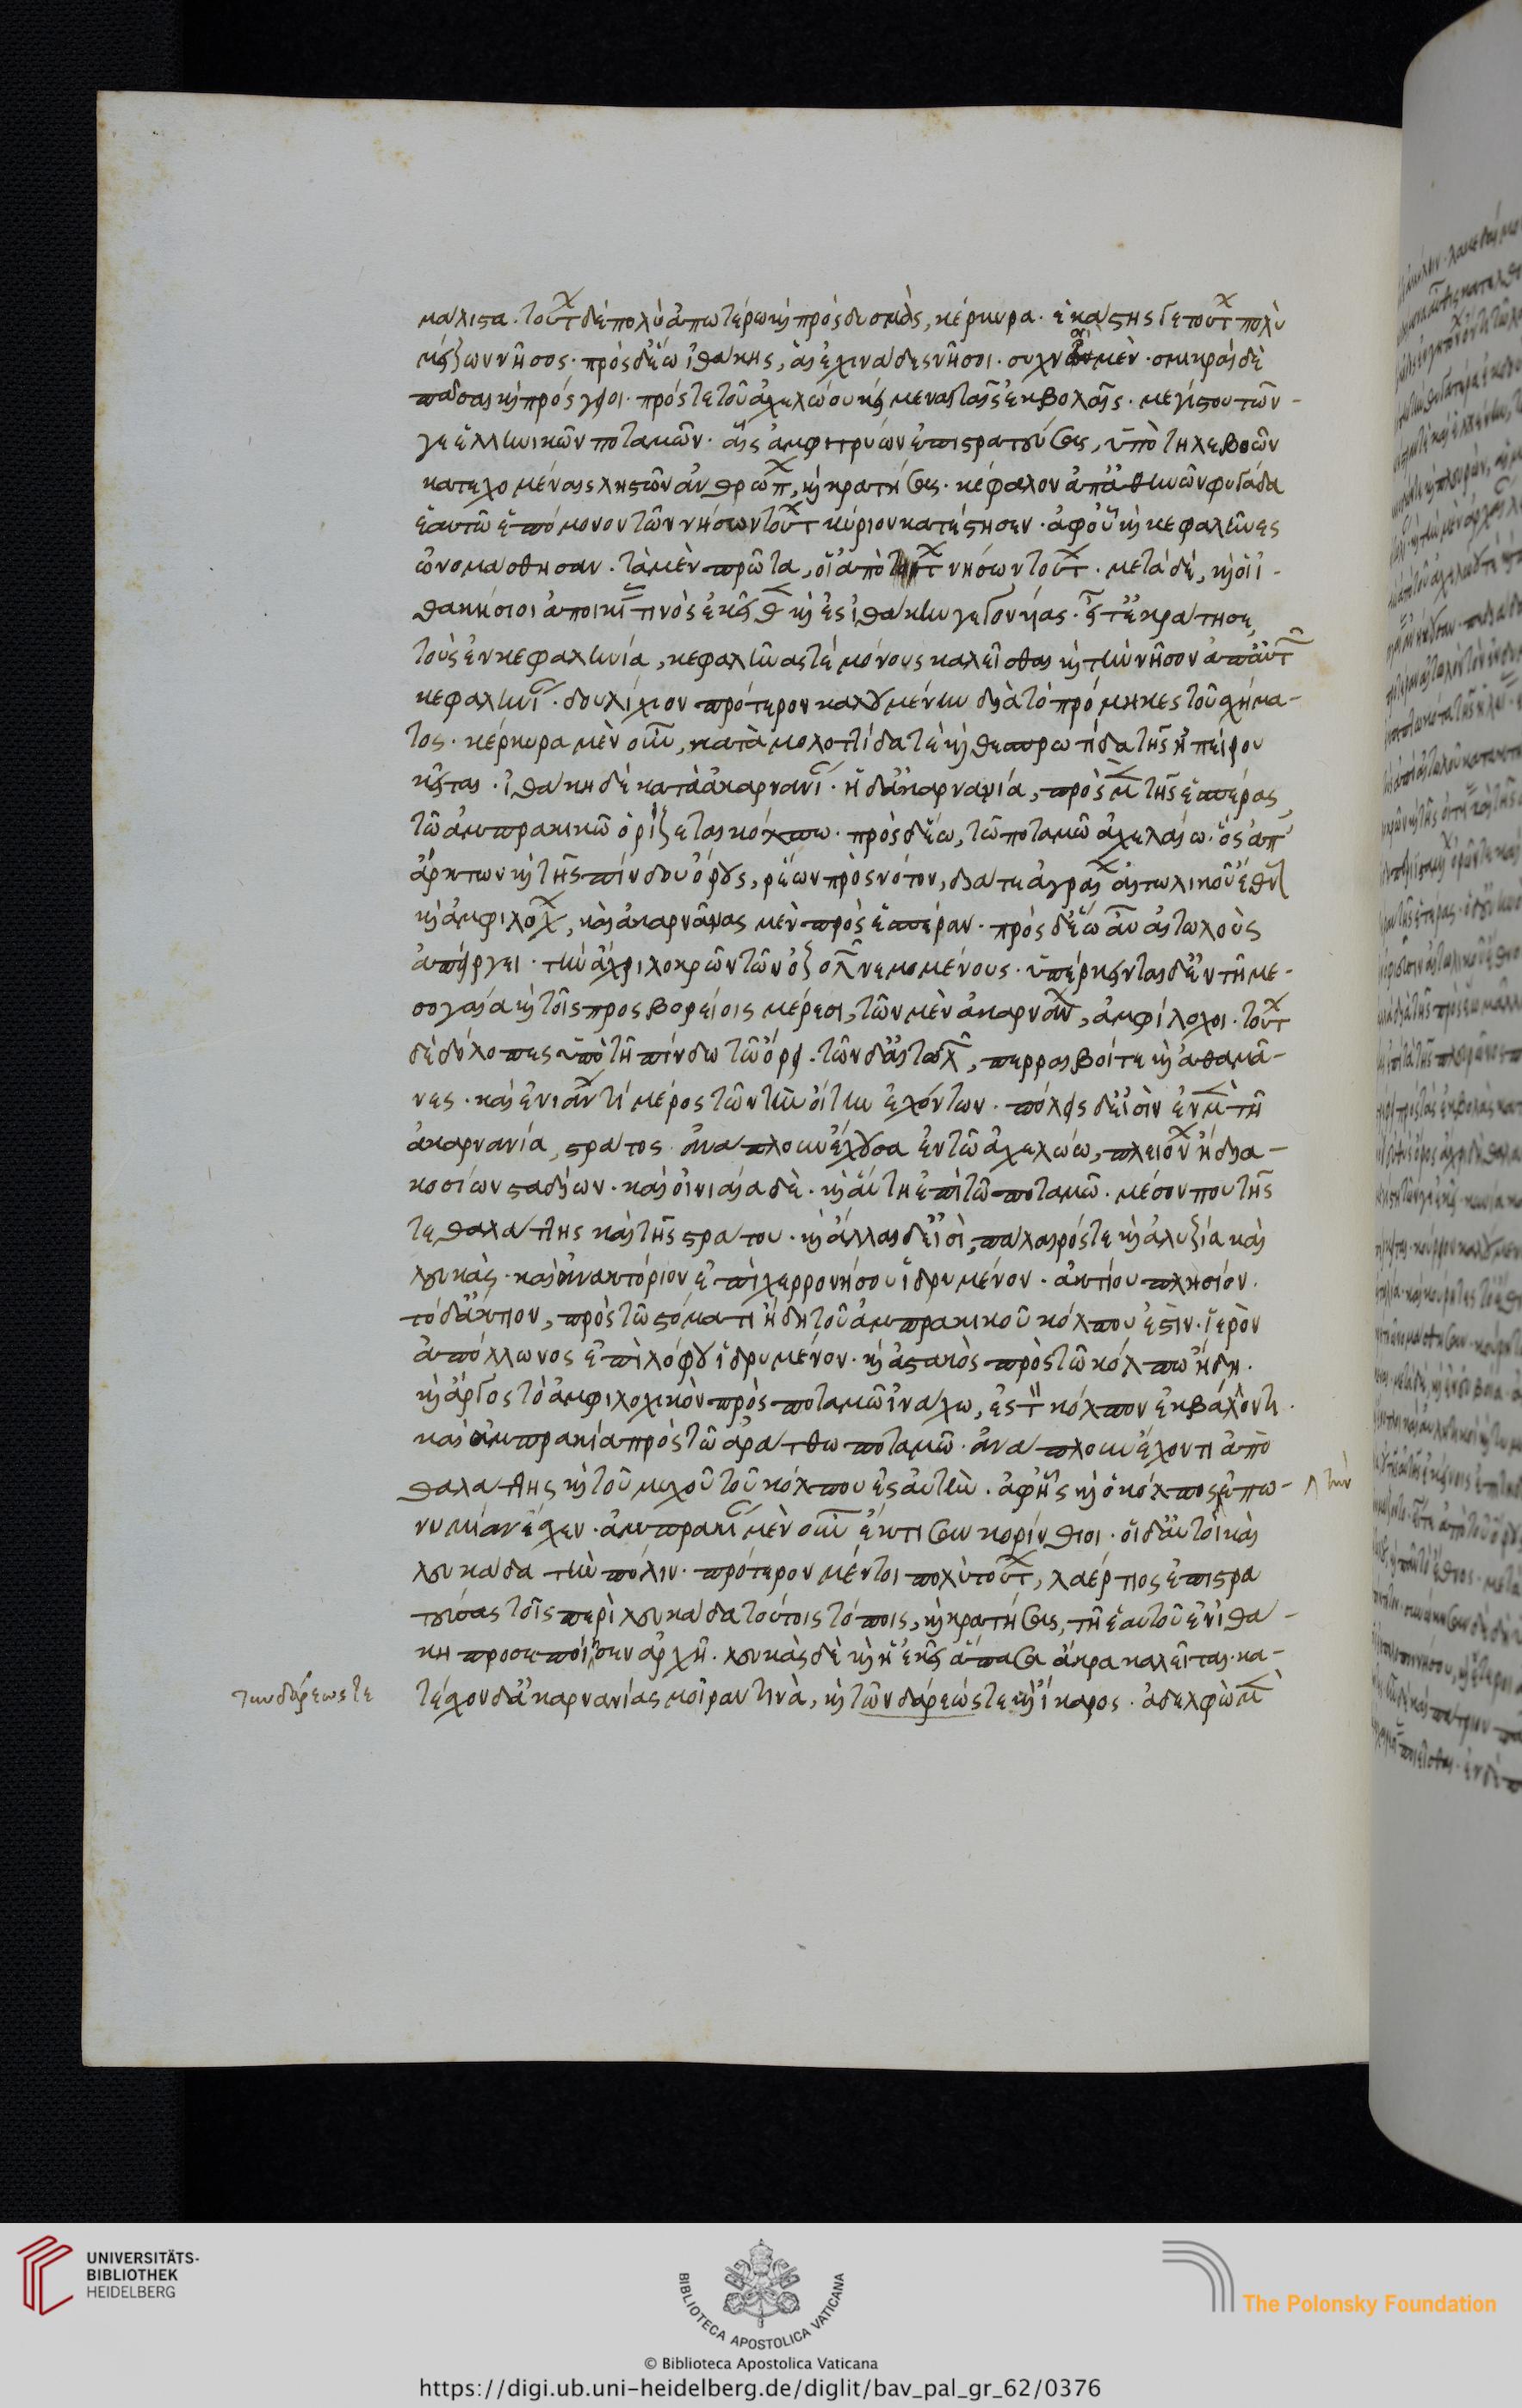 μάλιστα. τούτων δὲ πολὺ ἀπωτέρω καὶ πρὸς δυσμὰς, κέρκυρα. ἑκάστης γε τούτων πολὺ
μείζων νῆσος. πρὸς δ' ἕω ἰθάκης, αἱ ἐχινάδες νῆσοι. συχναὶ μὲν. σμικραὶ δὲ
πᾶσαι καὶ πρόσγειοι. πρός τε τοῦ ἀχελώου κείμεναι ταῖς ἐκβολαῖς. μεγίστου τῶν
γε ἑλληνικῶν ποταμῶν. αἷς ἀμφιτρύων ἐπιστρατεύσας, ὑπὸ τηλεβοῶν
κατεχομέναις ληστῶν ἀνθρώπων, καὶ κρατήσας. κέφαλον ἀπ' ἀθηνῶν φυγάδα
ἑαυτῶ ἑπόμενον τῶν νήσων τούτων κύριον κατέστησεν. ἀφ' οὗ καὶ κεφαλῆνες
ὠνομάσθησαν. τὰ μὲν πρῶτα, οἱ ἀπὸ τῶν νήσων τούτων. μετὰ δὲ, καὶ οἱ ἰ-
θακήσιοι ἀποικίας τινὸς ἐκεῖθεν καὶ ἐς ἰθάκην γεγονυίας. ἐκράτησε
τοὺς ἐν κεφαλληνία, κεφαλῆνάς τε μόνους καλεῖσθαι καὶ τὴν νῆσον ἀπ' αὐτῶν
κεφαλληνίαν. δουλίχιον πρότερον καλουμένην διὰ τὸ πρόμηκες τοῦ σχήμα-
τος. κέρκυρα μὲν οὖν, κατὰ μολοττίδα τὲ καὶ θεσπρωτίδα τῆς ἠπείρου
κεῖται. ἰθάκη δὲ κατὰ ἀκαρνανίαν. ἡ δ' ἀκαρνανία, πρὸς μὲν τῆς ἑσπέρας,
τῶ ἀμπρακικῶ ὁρίζεται κόλπω. πρὸς δ' ἕω, τῶ ποταμῶ ἀχελώω. ὃς ἀπ'
ἄρκτων καὶ τῆς πίνδου ὄρους, ῥέων πρὸς νότον, διά τε ἀγραίων αἰτωλικοῦ ἔθνους
καὶ ἀμφιλόχων, καὶ ἀκαρνᾶνας μὲν πρὸς ἑσπέραν. πρὸς δ' ἕω αὖ αἰτωλοὺς
ἀπείργει. τὴν ἄχρι λοκρῶν τῶν ὀζολῶν νεμομένους. ὑπέρκεινται δ' ἐν τῆ με-
σογαία καὶ τοῖς προσβορείοις μέρεσι, τῶν μὲν ἀκαρνάνων, ἀμφίλοχοι. τούτων
δὲ δόλοπες ὑπὸ τῆ πίνδω τῶ ὄρει. τῶν δ' αἰτωλῶν, περραιβοί τε καὶ ἀθαμᾶ-
νες. καὶ ἐνιάνων τί μέρος τῶν τὴν οἴτην ἐχόντων. πόλεις δ' εἰσὶν ἐν μὲν τῆ
ἀκαρνανία, στράτος. ἀνάπλουν ἔχουσα ἐν τῶ ἀχελώω, πλειόνων ἢ δια-
κοσίων σταδίων. καὶ οἰνιαία δὲ. καὶ αὕτη ἐπὶ τῶ ποταμῶ. μέσον που τῆς
τε θαλάττης καὶ τῆς στράτου. καὶ ἄλλαι δ' εἰσὶ, παλαιρός τε καὶ ἀλυζία καὶ
λευκὰς. καὶ ἀνακτόριον ἐπὶ χερρονήσου ἱδρυμένον. ἀκτίου πλησίον.
τὸ δ' ἄκτιον, πρὸς τῶ στόματι ἤδη τοῦ ἀμπρακικοῦ κόλπου ἐστὶν. ἱερὸν
ἀπόλλωνος ἐπὶ λόφου ἱδρυμένον. καὶ ἀστακὸς πρὸς τῶ κόλπω ἤδη.
καὶ ἄργος τὸ ἀμφιλοχικὸν πρὸς ποταμῶ ἰνάχω, ἐς τὸν κόλπον ἐκβάλλοντι.
καὶ ἀμπρακία πρὸς τῶ ἀράτθω ποταμῶ. ἀνάπλουν ἔχοντι ἀπὸ
θαλάττης καὶ τοῦ μυχοῦ τοῦ κόλπου ἐς αὐτὴν. ἀφ' ἧς καὶ ὁ κόλπος ἐπω- ⁁ τὴν
νυμίαν ἔχει. ἀμπρακίαν μὲν οὖν ἔκτισαν κορίνθιοι. οἱ δ' αὐτοὶ καὶ
λευκάδα τὴν πόλιν. πρότερον μέντοι πολὺ τούτων, λαέρτιος ἐπιστρα
τεύσας τοῖς περὶ λευκάδα τούτοις τόποις, καὶ κρατήσας, τῆ ἑαυτοῦ ἐν ἰθά-
κη προσεποίησεν ἀρχῆ. λευκὰς δὲ καὶ ἡ ἐκεῖ ἅπασα ἄκρα καλεῖται. κα-
τέσχον δ' ἀκαρνανίας μοῖραν τινὰ, καὶ τῶν δάρεώς τε καὶ ἴκαρος. ἀδελφὼ μὲν
τυνδάρεώς τε
UNIVERSITÄTS-
BIBLIOTHEK
HEIDELBERG
BIBLIOTECA APOSTOLICA VATICANA
© Biblioteca Apostolica Vaticana
The Polonsky Foundation
https://digi.ub.uni-heidelberg.de/diglit/bav_pal_gr_62/0376